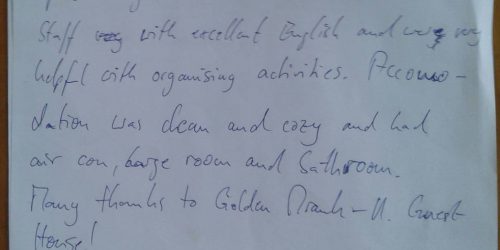 Staff with excellent English and very
helpful with organising activities. Accomo-
dation was clean and cozy and had
air con, large room and Bathroom.
Many thanks to Golden Guest
House!